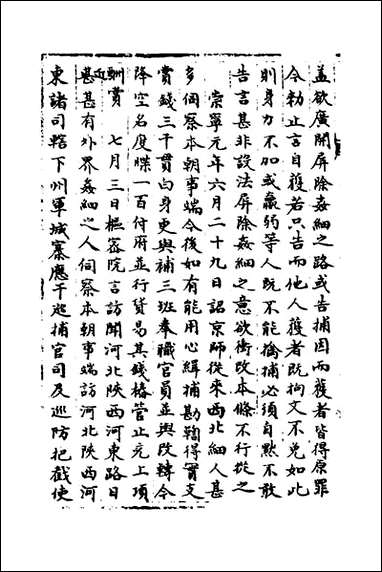 蓋欲廣開屏除姦細之路或告捕因而獲者皆得原罪
令勑止言自獲若只告而他人獲者既拘文不免如此
則身力不加或羸弱等人既不能擒捕必須自默不敢
告言甚非設法屏除姦細之意欲衝改本條不行從之
崇寧元年六月二十九日詔京師從來西北細人甚
多伺察本朝事端今後如有能用心緝捕勘鞫得實支
賞錢三千貫白身更與補三班奉職官員並與改轉令
降空名度牒一百付府並行貨易其錢樁管止充上項
酬賞 七月三日樞密院言訪聞河北陝西河東路日
近甚有外界姦細之人伺察本朝事端訪河北陝西河
東諸司轄下州軍城寨應干巡捕官司及巡防把截使